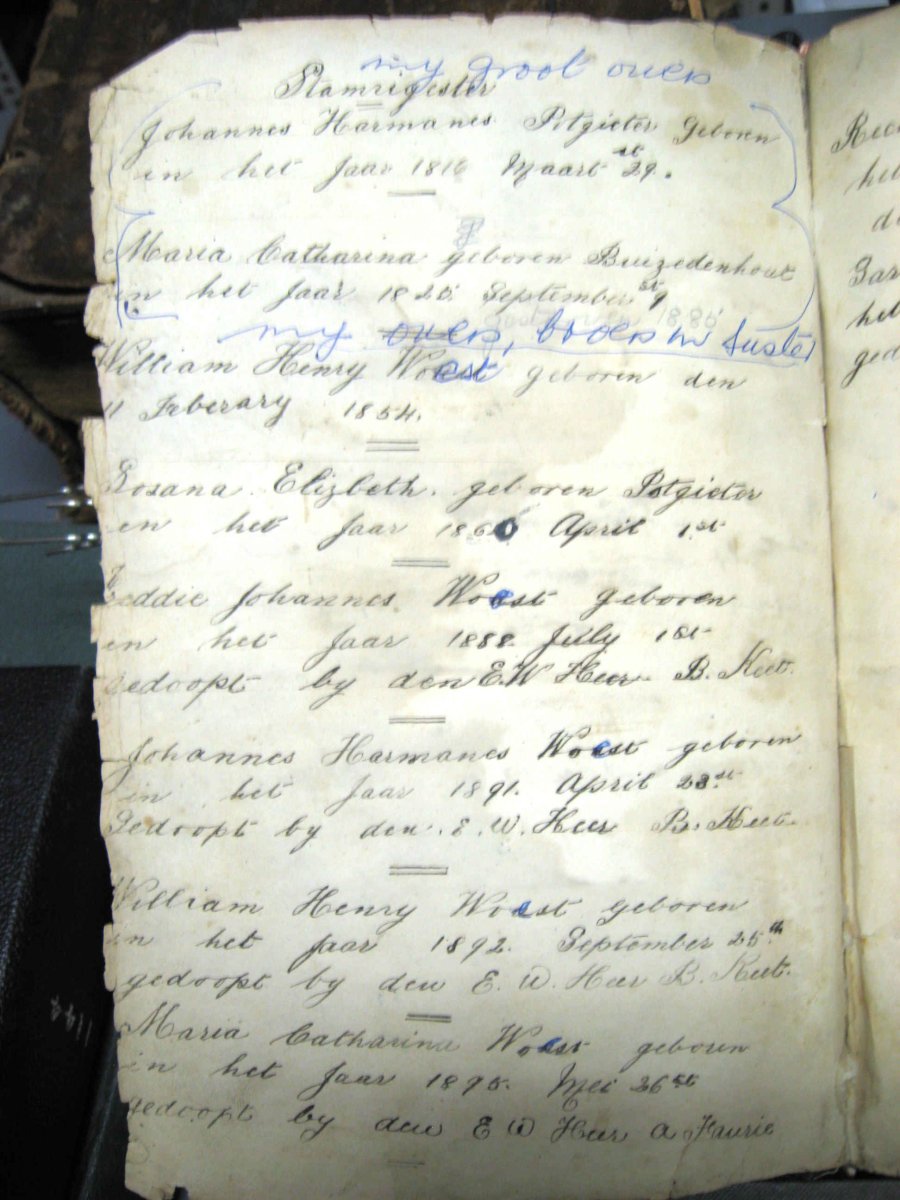 my groot ouers
Stamrigester
Johannes Harmanes Potgieter Geboren
in het Jaar 1816 Maart 29.st
Maria Catharina geboren Buizedenhout
in het Jaar 1825 September 9st
1885
my ouers, broers en Suster
William Henry Woest geboren den
11 Feberary 1854.
Rosana Elizbeth. geboren Potgieter
en het Jaar 1860 April 1st
eddie Johannes Woest geboren
en het Jaar 1888 July 1st
gedoopt by den E.W Heer B. Keet.
Johannes Harmanes Woest geboren
in het Jaar 1891. April 23.st
Gedoopt by den. E. W. Heer B. Keet.
William Henry Woest geboren
en het Jaar 1892. September 25th
gedoopt by den E. W. Heer B. Keet.
Maria Catharina Woest geboren
in het Jaar 1895. Mei 26st
gedoopt by den E W Heer A Faurie
het
het
ged
1194